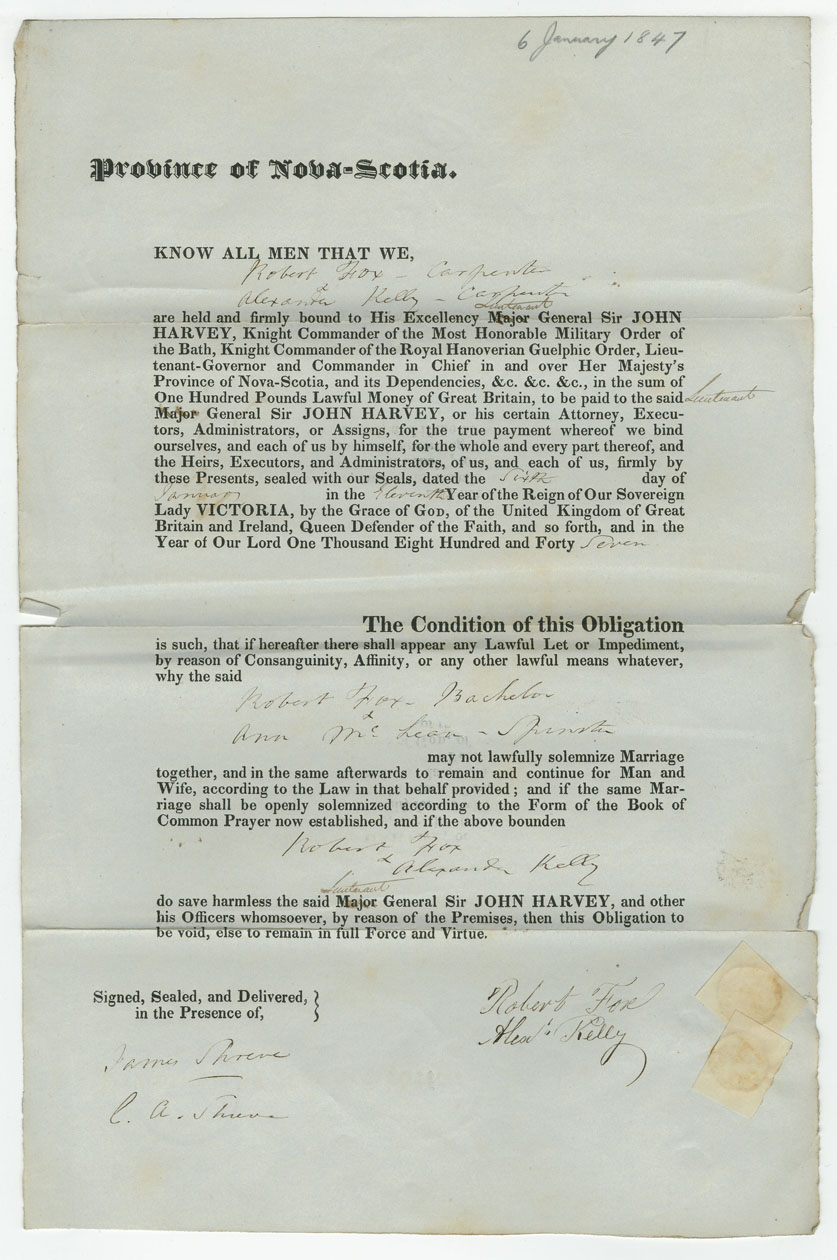 6 January 1847
Province of Nova-Scotia.
KNOW ALL MEN THAT WE,
Robert Fox - Carpenter
&
Alexander Kelly - Carpenter
Lieutenant
are held and firmly bound to His Excellency Major General Sir JOHN
HARVEY, Knight Commander of the Most Honorable Military Order of
the Bath, Knight Commander of the Royal Hanoverian Guelphic Order, Lieu-
tenant-Governor and Commander in Chief in and over Her Majesty's
Province of Nova-Scotia, and its Dependencies, &c. &c. &c., in the sum of
One Hundred Pounds Lawful Money of Great Britain, to be paid to the said Lieutenant
Major General Sir JOHN HARVEY, or his certain Attorney, Execu-
tors, Administrators, or Assigns, for the true payment whereof we bind
ourselves, and each of us by himself, for the whole and every part thereof, and
the Heirs, Executors, and Administrators, of us, and each of us, firmly by
these Presents, sealed with our Seals, dated the Sixth day of
January in the Eleventh Year of the Reign of Our Sovereign
Lady VICTORIA, by the Grace of God, of the United Kingdom of Great
Britain and Ireland, Queen Defender of the Faith, and so forth, and in the
Year of Our Lord One Thousand Eight Hundred and Forty Seven
The Condition of this Obligation
is such, that if hereafter there shall appear any Lawful Let or Impediment,
by reason of Consanguinity, Affinity, or any other lawful means whatever,
why the said
Robert Fox - Bachelor
&
Ann Mc Lean - Spinster
may not lawfully solemnize Marriage
together, and in the same afterwards to remain and continue for Man and
Wife, according to the Law in that behalf provided ; and if the same Mar-
riage shall be openly solemnized according to the Form of the Book of
Common Prayer now established, and if the above bounden
Robert Fox
& Alexander Kelly
Lieutenant
do save harmless the said Major General Sir JOHN HARVEY, and other
his Officers whomsoever, by reason of the Premises, then this Obligation to
be void, else to remain in full Force and Virtue.
Signed, Sealed, and Delivered,
in the Presence of,
Robert Fox
Alexr Kelly
James Shreve
C. A. Shreve